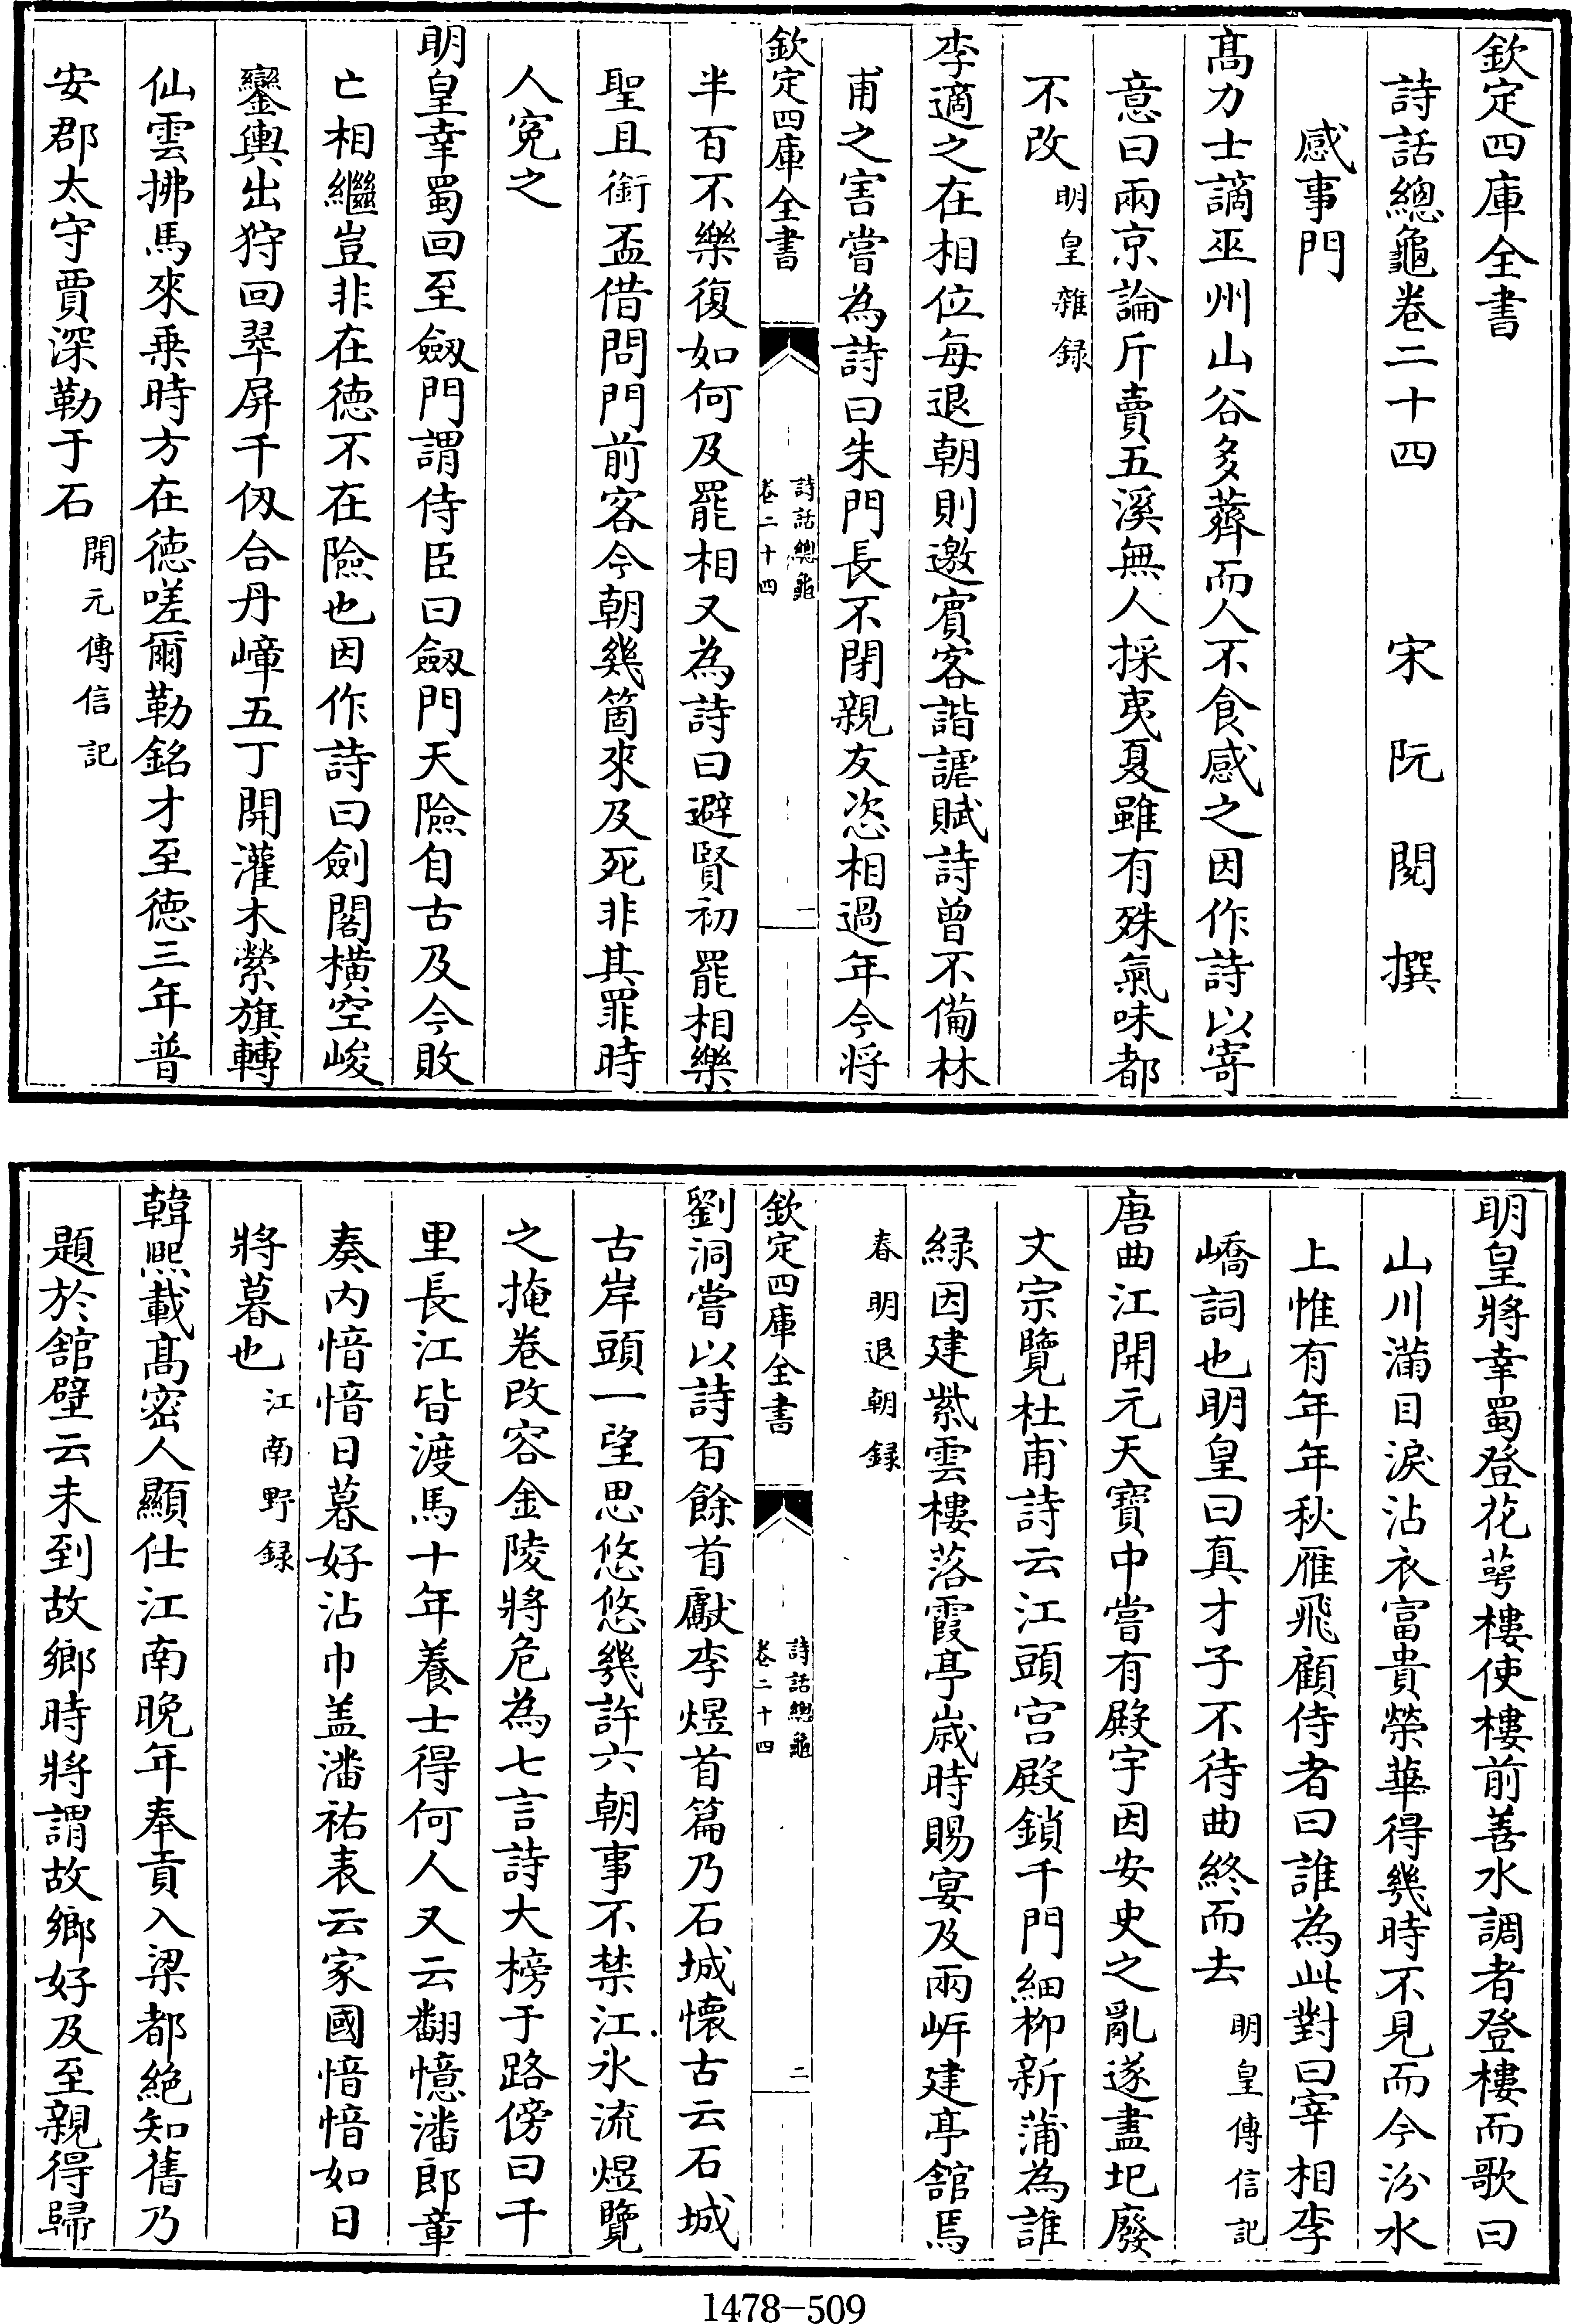 欽定四庫全書
詩話總龜卷二十四　宋　阮　閱　撰
感事門
髙力士謫巫州山谷多薺而人不食感之因作詩以寄
意曰兩京論斤賣五溪無人採夷夏雖有殊氣味都
不改明皇雜録
李適之在相位每退朝則邀賓客諧謔賦詩曾不備林
甫之害嘗為詩曰朱門長不閉親友恣相過年今将
欽定四庫全書
詩話總龜
卷二十四
一
半百不樂復如何及罷相又為詩曰避賢初罷相樂
聖且銜盃借問門前客今朝幾箇來及死非其罪時
人寃之
明皇幸蜀回至劔門謂侍臣曰劔門天險自古及今敗
亡相繼豈非在徳不在險也因作詩曰劍閣横空峻
鑾輿出狩回翠屏千仭合丹嶂五丁開灌木縈旗轉
仙雲拂馬來乗時方在徳嗟爾勒銘才至徳三年普
安郡太守賈深勒于石開元傳信記
明皇將幸蜀登花萼樓使樓前善水調者登樓而歌曰
山川滿目淚沾衣富貴榮華得幾時不見而今汾水
上惟有年年秋雁飛顧侍者曰誰為此對曰宰相李
嶠詞也明皇曰真才子不待曲終而去明皇傳信記
唐曲江開元天寳中嘗有殿宇因安史之亂遂盡圮廢
文宗覽杜甫詩云江頭宫殿鎖千門細柳新蒲為誰
緑因建紫雲樓落霞亭歳時賜宴及兩岍建亭舘焉
春明退朝録
欽定四庫全書
詩話總龜
卷二十四
二
劉洞嘗以詩百餘首獻李煜首篇乃石城懐古云石城
古岸頭一望思悠悠幾許六朝事不禁江水流煜覽
之掩卷改容金陵將危為七言詩大榜于路傍曰千
里長江皆渡馬十年養士得何人又云翻憶潘郎章
奏内愔愔日暮好沾巾盖潘祐表云家國愔愔如日
將暮也江南野録
韓熙載髙密人顯仕江南晩年奉貢入梁都絶知舊乃
題於舘壁云未到故鄉時將謂故鄉好及至親得歸
1478—509